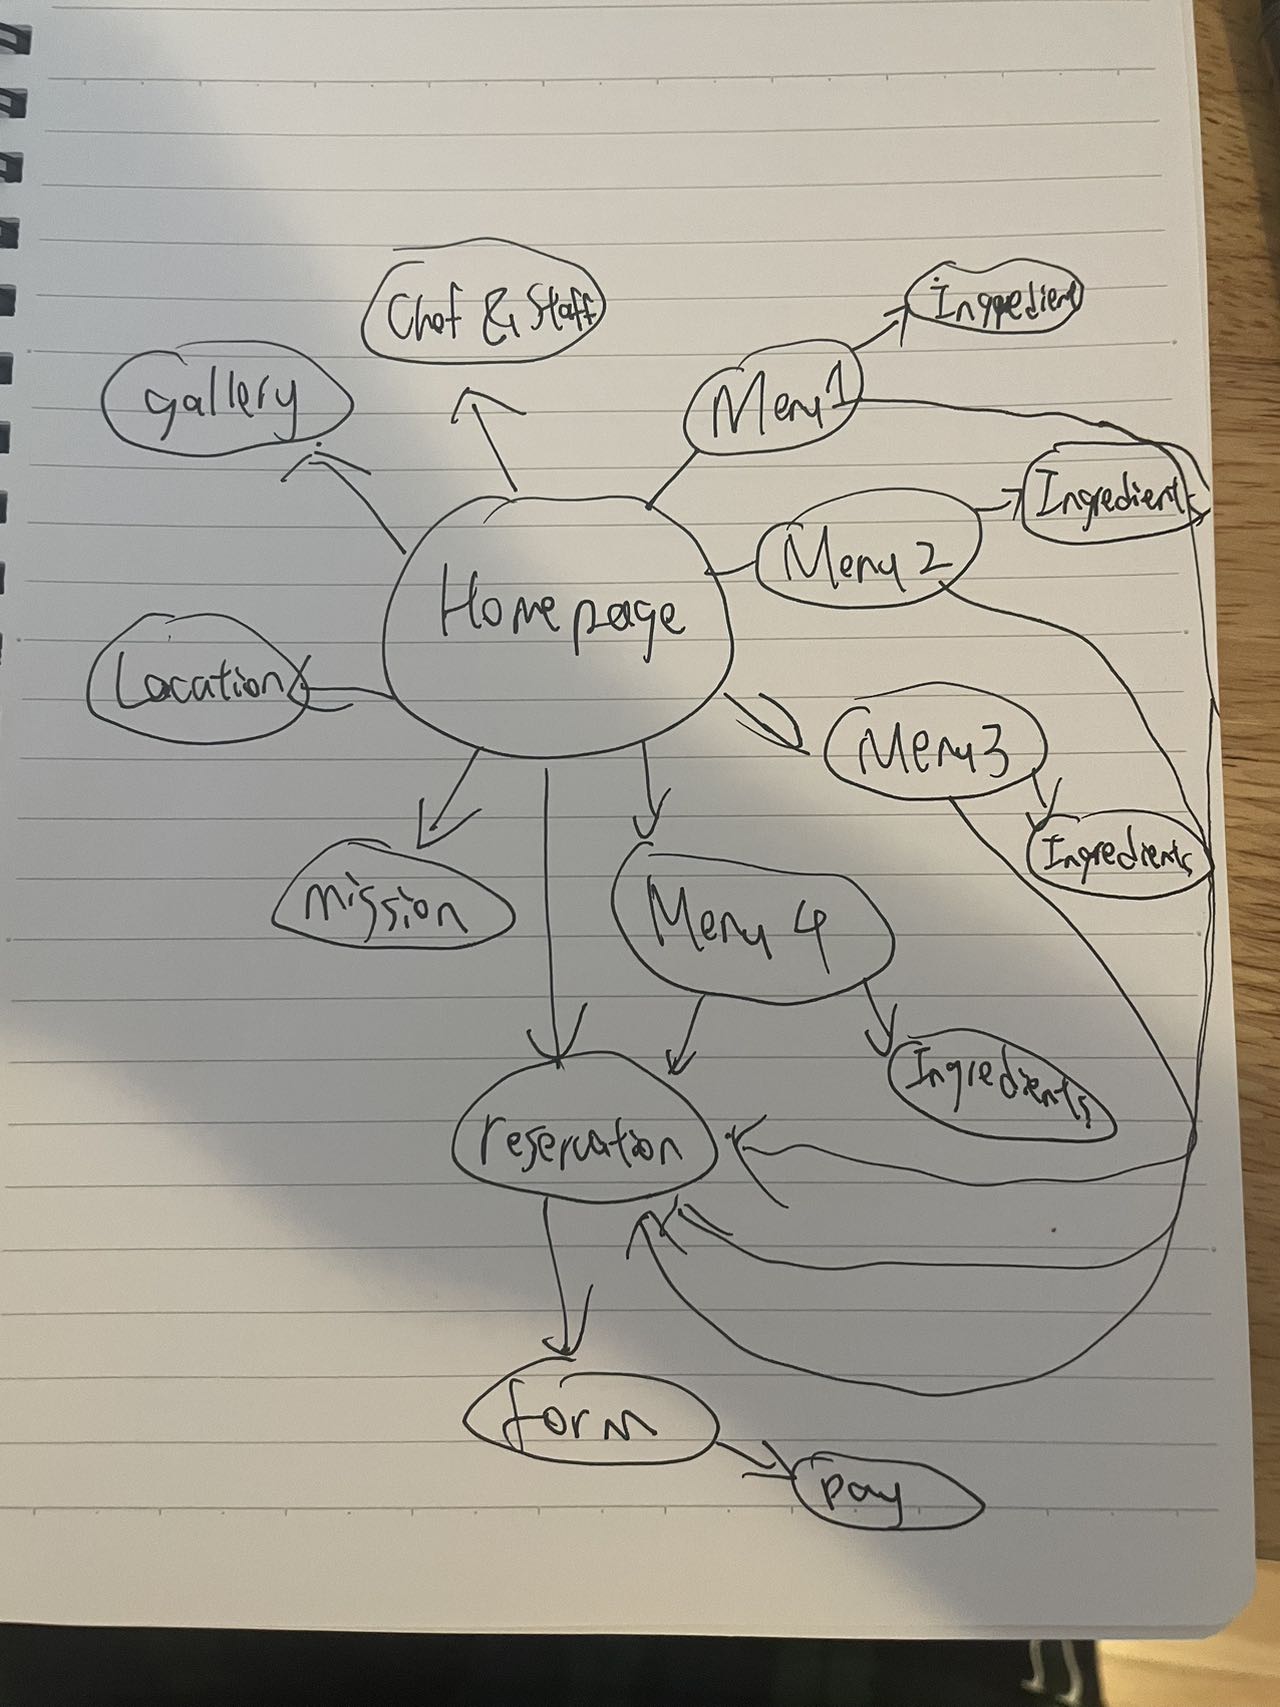 Chef & Staff
Ingredient
gallery
Menu 1
Ingredients
Menu 2
Homepage
Location
Menu 3
Ingredients
mission
Menu 4
Ingredients
reservation
form
pay